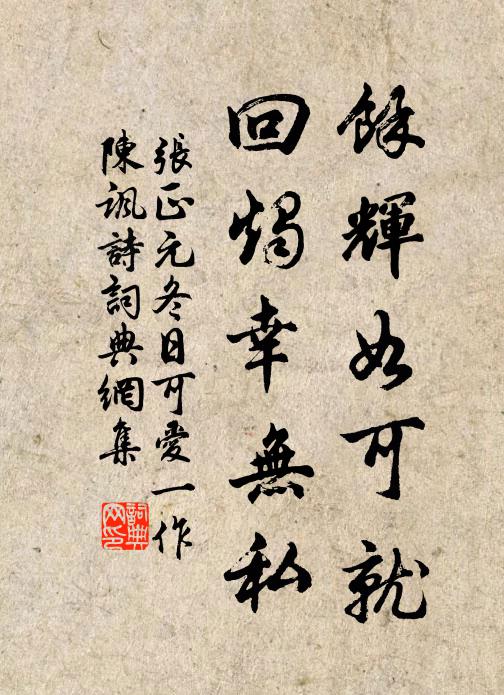 餘輝如可就
回燭幸無私
張正元冬日可愛一作
陳諷詩詞典網集
詞典网印